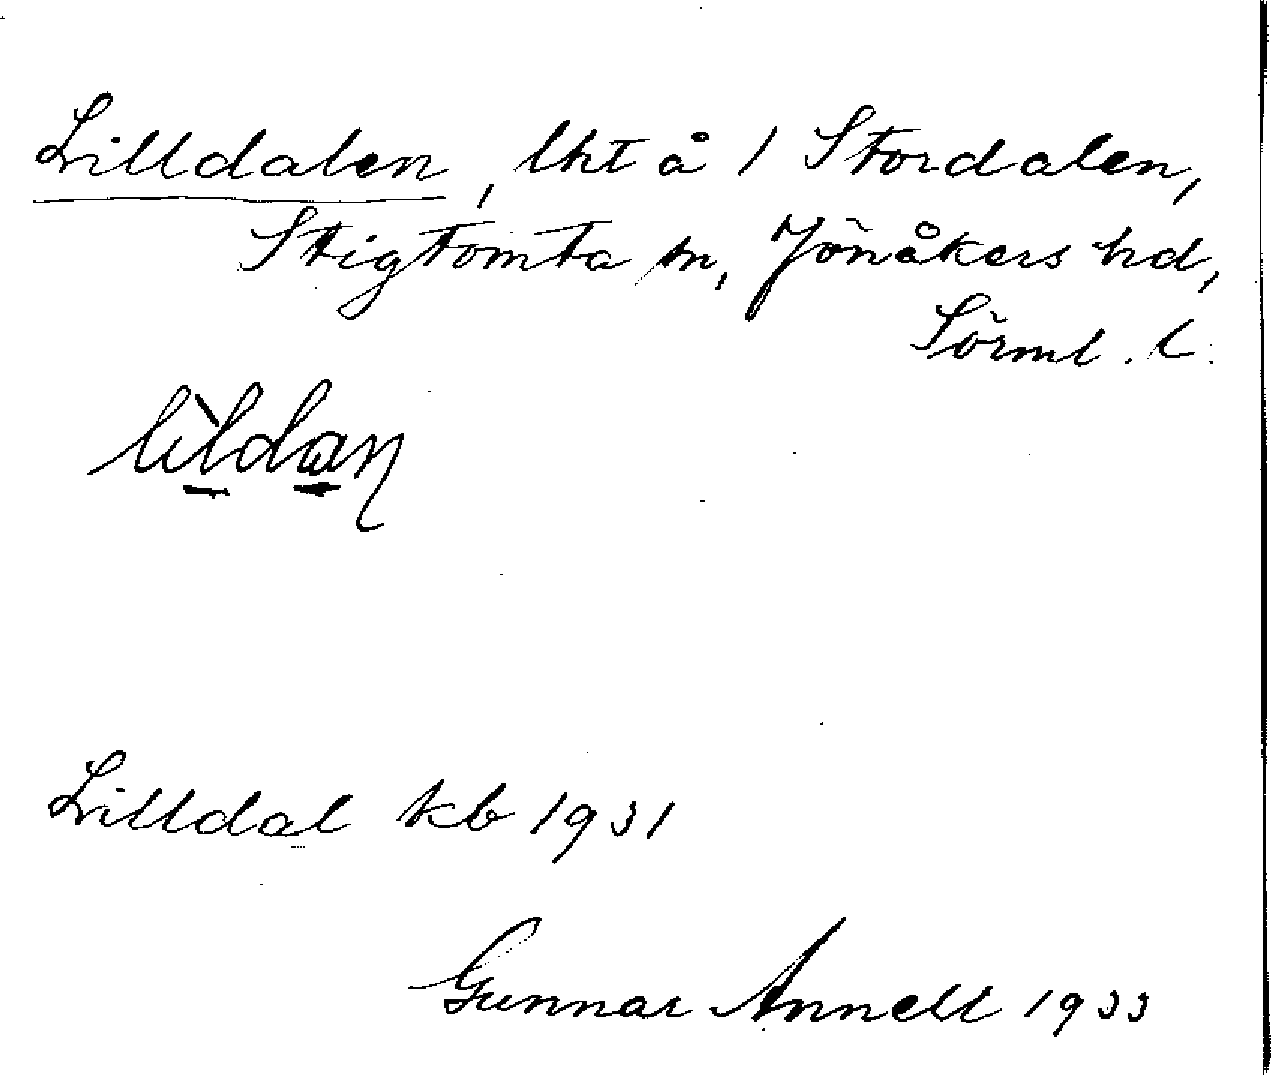 Lilldalen, lht å 1 Stordalen,
Stigtomta sn, Jönåkers hd,
Sörml. l.
lìldan
Lilldal kb 1931
Gunnar Annell 1933